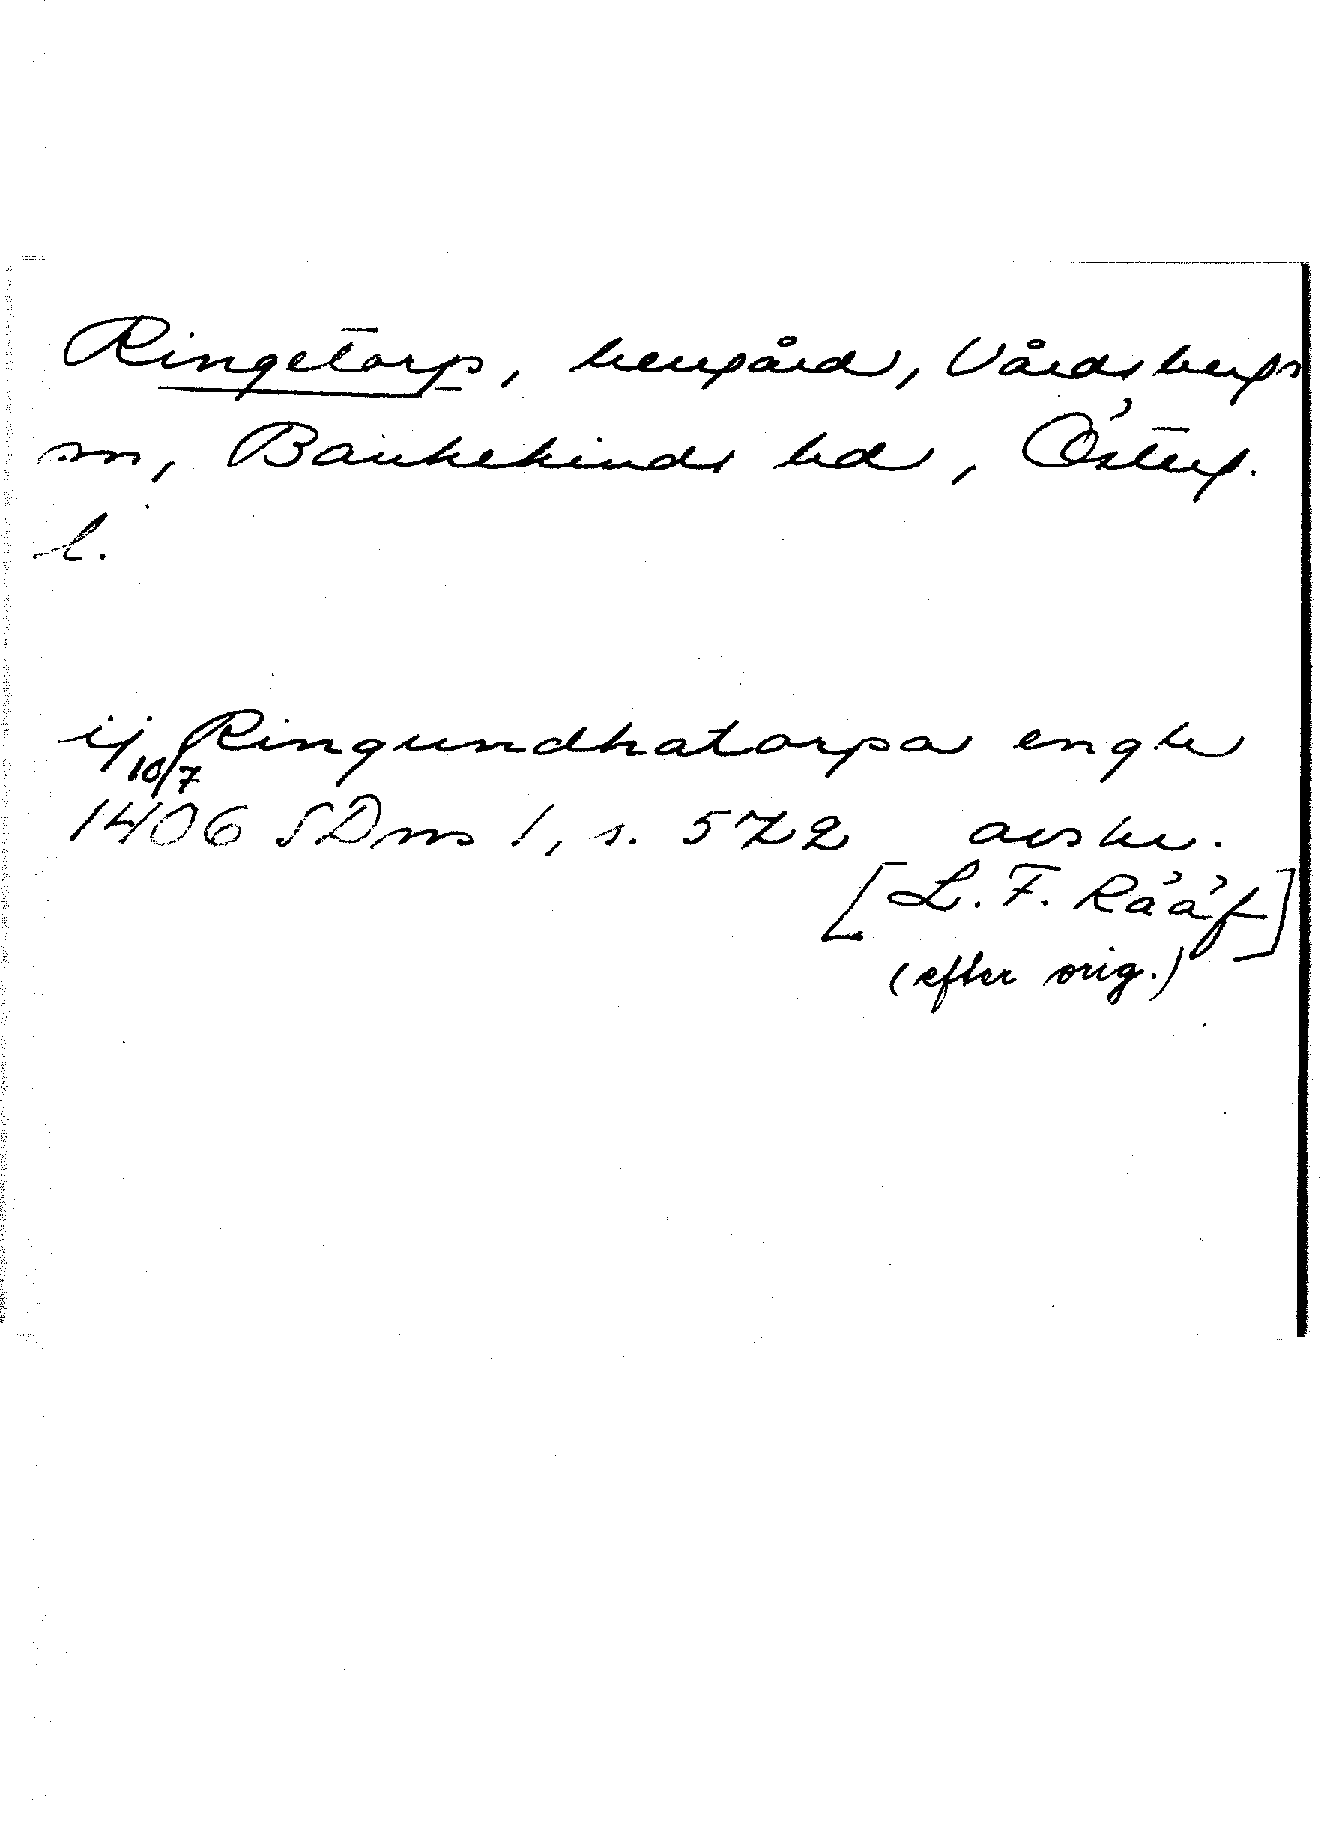 Ringetorp, herrgård, Vårdsbergs
sn, Bankekinds hd, Österg.
l.
ij Ringundhatorpa enghe
10/7
1406 SDns 1, s. 572 avskr.
[L. F. Rääf]
(efter orig.)